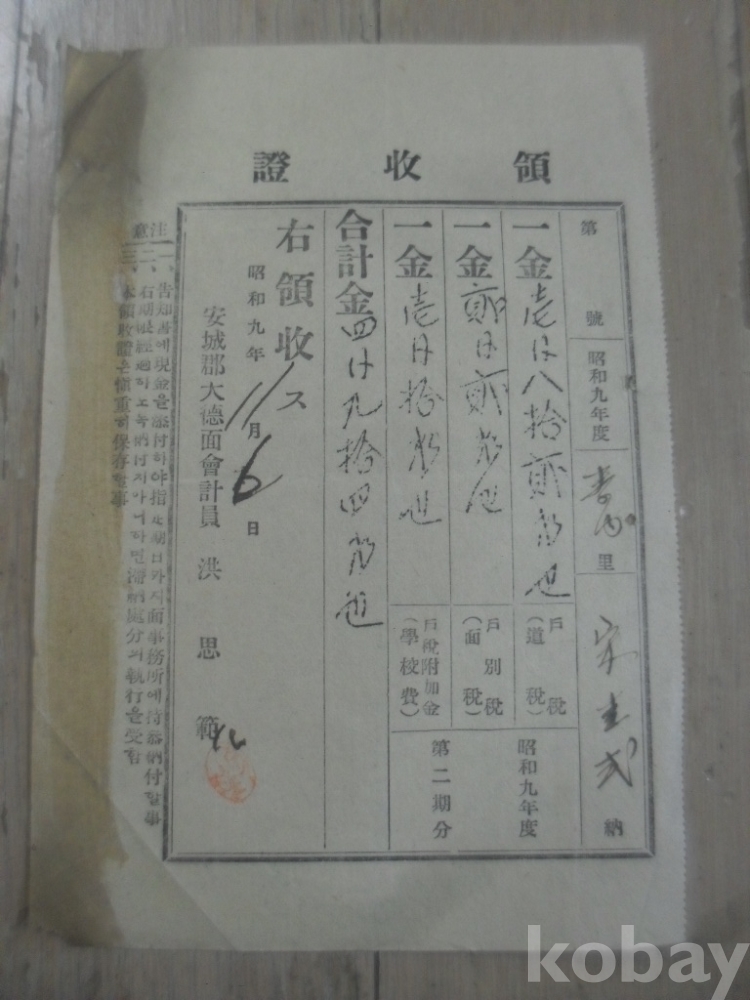 領收證
第 號
昭和九年度
里
宋 納
一金壱円八拾貳戋也
戶稅
(道稅)
一金貳円貳戋也
戶別稅
(面稅)
一金壱円拾戋也
戶稅附加金
(學校費)
昭和九年度
第二期分
合計金四円九拾四戋也
右領收ス
昭和九年11月6日
安城郡大德面會計員 洪思範
注意
一、告知書에現金을添付하야指定期日까지面事務所에持參納付할事
二、右期限經過하고도納付치아니하면滯納處分의執行을受함
三、本領收證은愼重히保存할事
kobay